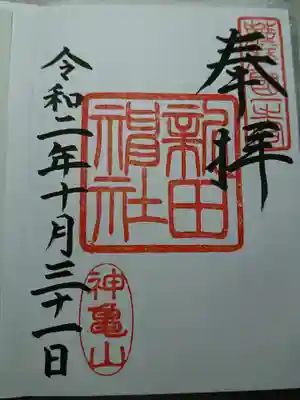 奉拝
新田
神社
令和二年十月三十一日
神亀山